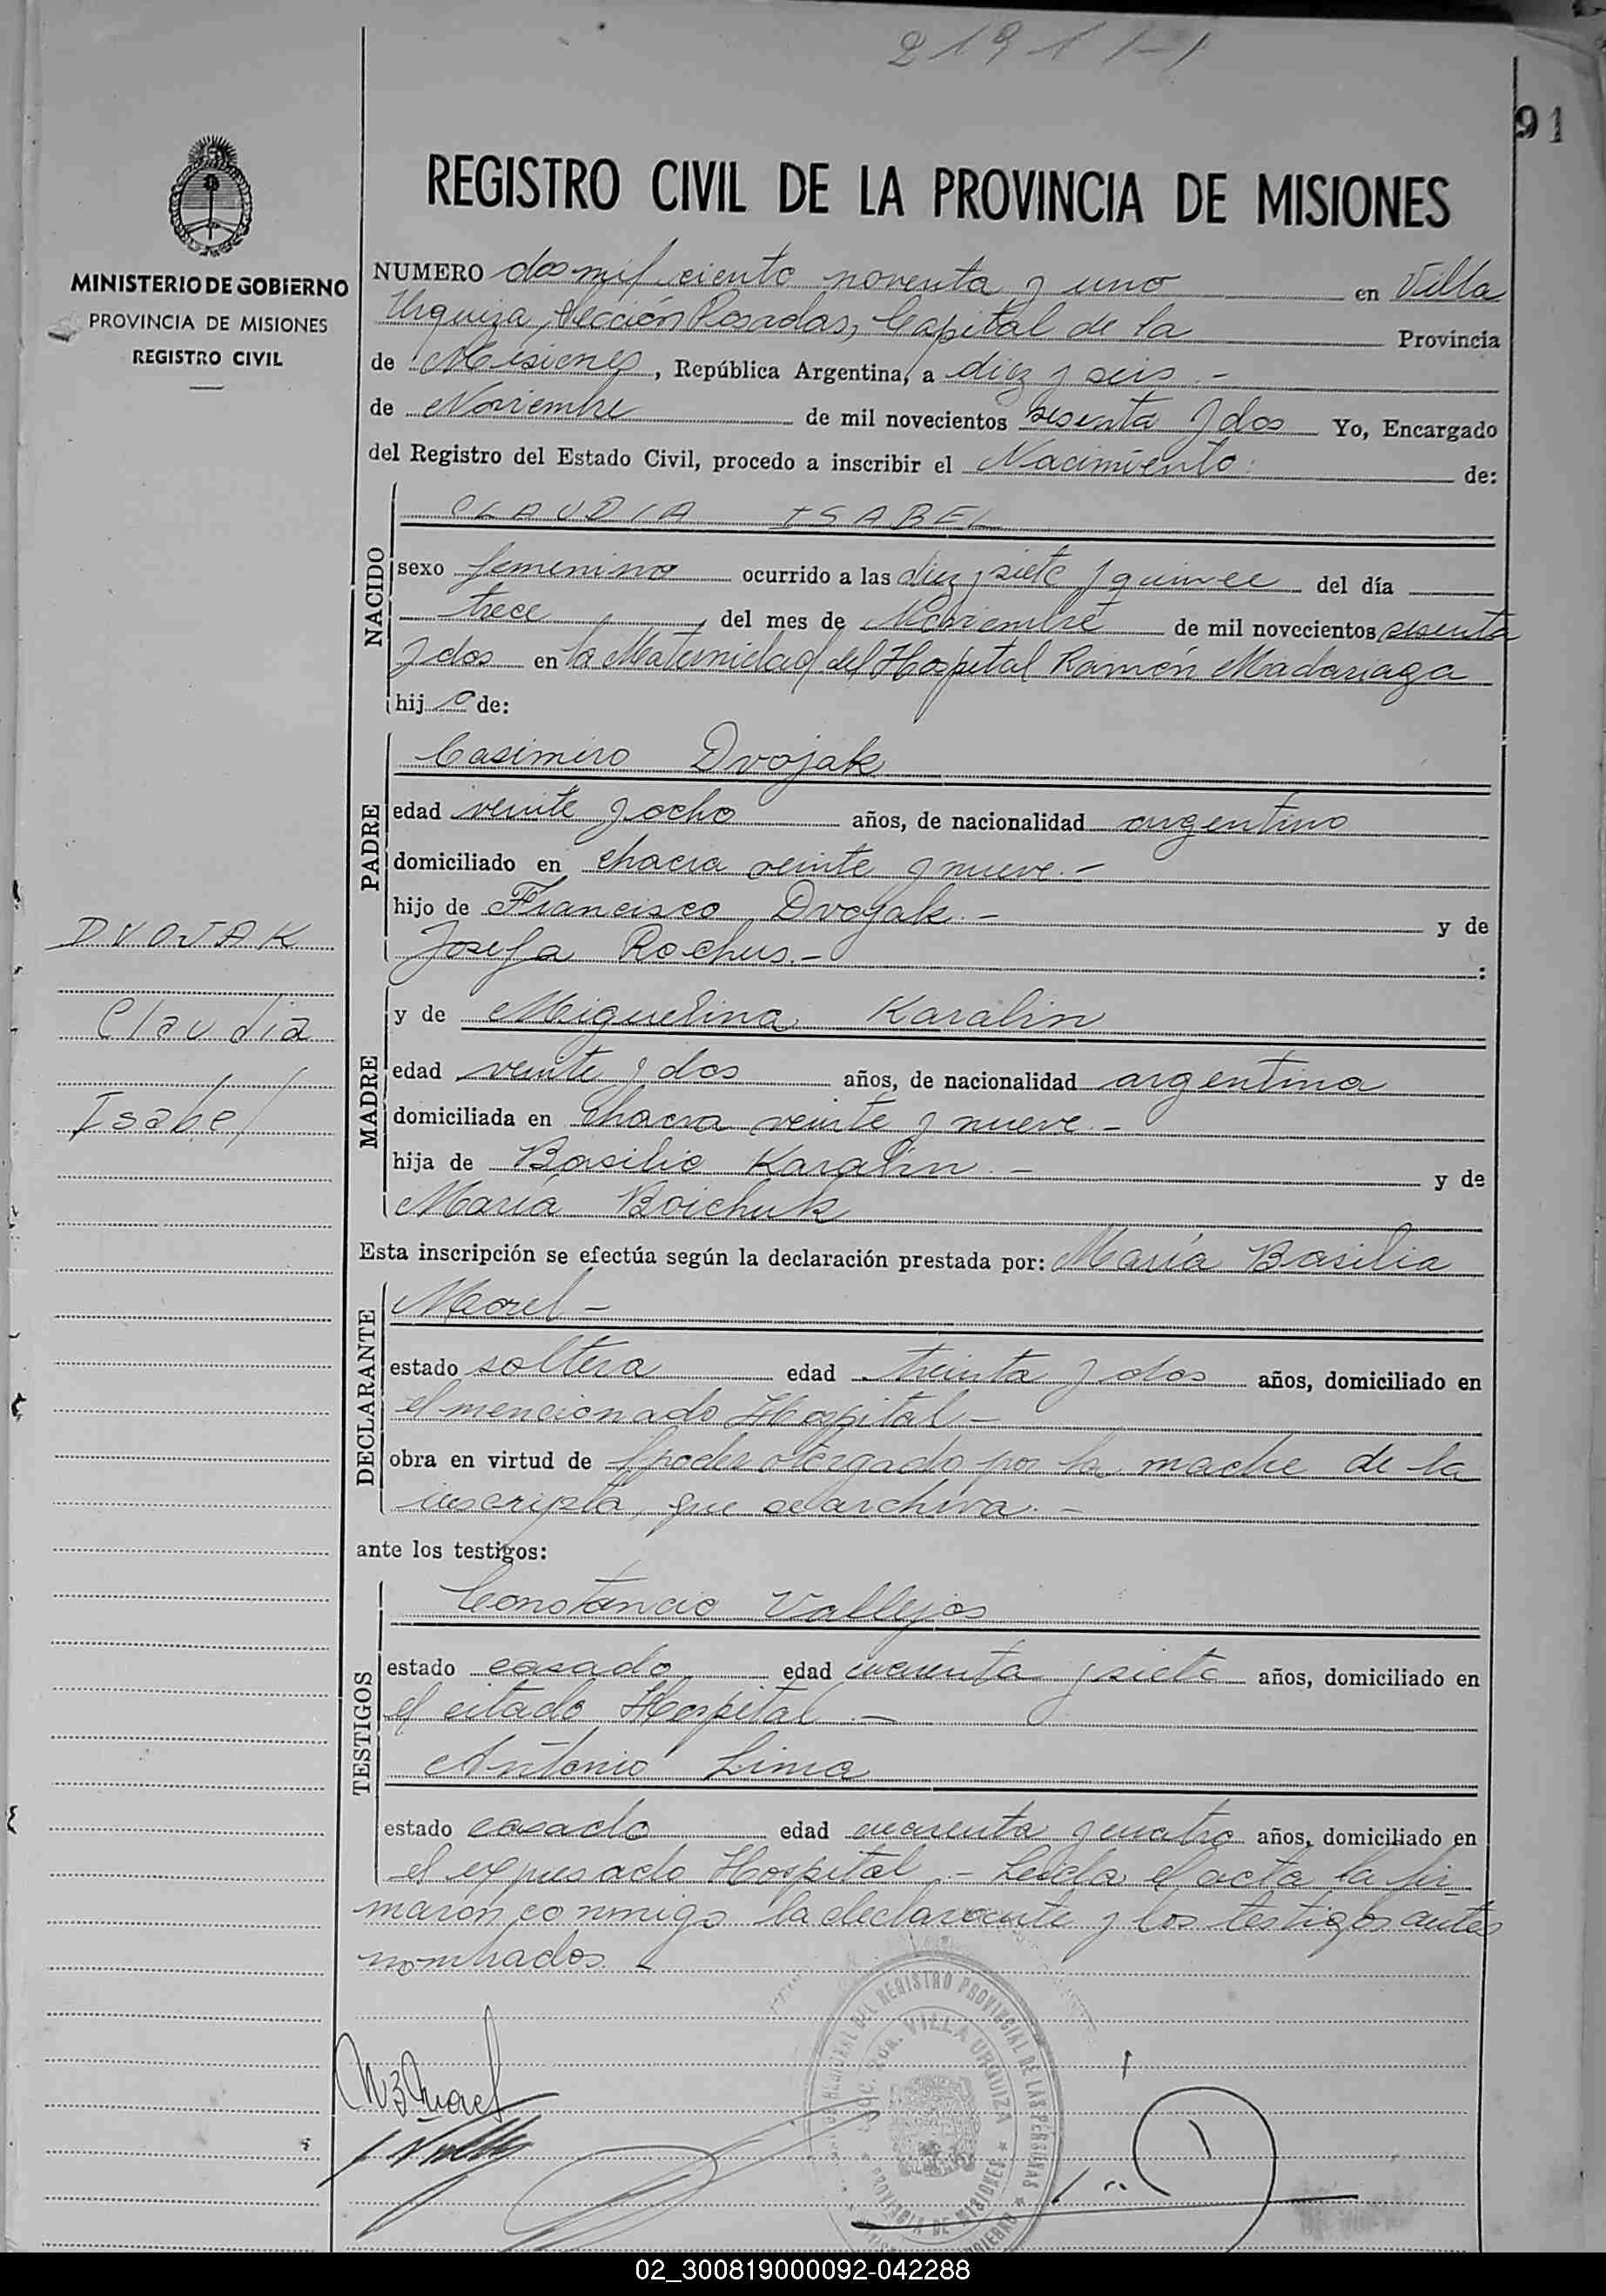 2191
91
REGISTRO CIVIL DE LA PROVINCIA DE MISIONES
MINISTERIO DE GOBIERNO
PROVINCIA DE MISIONES
REGISTRO CIVIL
NUMERO dos mil ciento noventa y uno en Villa
Urquiza, Sección Posadas, Capital de la Provincia
de Misiones, República Argentina, a diez y seis.-
de Noviembre de mil novecientos sesenta y dos Yo, Encargado
del Registro del Estado Civil, procedo a inscribir el Nacimiento: de:
NACIDO
CLAUDIA ISABEL
sexo femenino ocurrido a las diez y siete y quince del día
trece del mes de Noviembre de mil novecientos sesenta
y dos en la Maternidad del Hospital Ramón Madariaga
hij a de:
PADRE
Casimiro Dvojak
edad veinte y ocho años, de nacionalidad argentino
domiciliado en chacra veinte y nueve.-
hijo de Francisco Dvojak.- y de
Josefa Rochus.- :
DVOJAK
Claudia
Isabel
MADRE
y de Miguelina Karalin
edad veinte y dos años, de nacionalidad argentina
domiciliada en Chacra veinte y nueve.-
hija de Basilio Karalin.- y de
María Boichuk
Esta inscripción se efectúa según la declaración prestada por: María Basilia
DECLARANTE
Morel-
estado soltera edad treinta y dos años, domiciliado en
el mencionado Hospital.-
obra en virtud de poder otorgado por la madre de la
inscripta, que se archiva.-
ante los testigos:
TESTIGOS
Constancio Vallejos
estado casado edad cuarenta y siete años, domiciliado en
el citado Hospital.-
Antonio Lima
estado casado edad cuarenta y cuatro años, domiciliado en
el expresado Hospital.- Leída el acta la fir-
maron conmigo la declarante y los testigos antes
nombrados.
DEL REGISTRO PROVINCIAL DE LAS PERSONAS
VILLA URQUIZA
PROVINCIA DE MISIONES
02_300819000092-042288